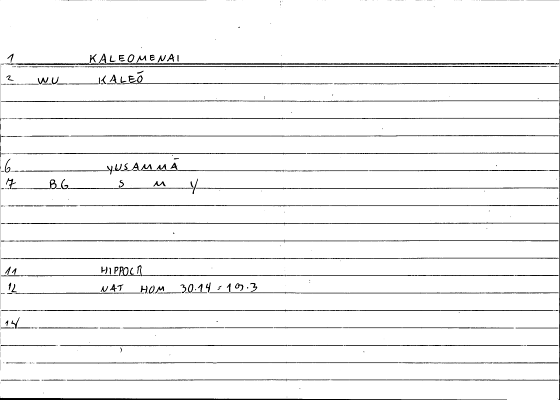 1 KALEOMENAI
2 WU KALEŌ
6 yUSAMMĀ
7 BG S M y
11 HIPPOCR
12 NAT HOM 30.14 = 109.3
14